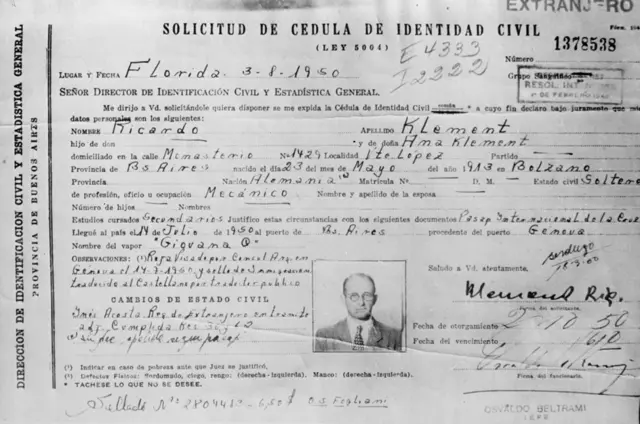 EXTRANJERO
SOLICITUD DE CEDULA DE IDENTIDAD CIVIL
(LEY 5004)
E 4333
I 2222
Número
1378538
LUGAR Y FECHA Florida. 3-8-1950
SEÑOR DIRECTOR DE IDENTIFICACIÓN CIVIL Y ESTADÍSTICA GENERAL.
RESOL. INT. N
Me dirijo a Vd. solicitándole quiera disponer se me expida la Cédula de Identidad Civil * a cuyo fin declaro bajo juramento que mis
datos personales son los siguientes:
NOMBRE Ricardo APELLIDO Klement
hijo de don y de doña Ana Klement
domiciliado en la calle Monasterio Nº 1429 Localidad Vte. López Partido
Provincia de Bs Aires nacido el día 23 del mes de Mayo del año 1913 en Bolzano
Provincia Nación Alemania Matrícula Nº D. M. Estado civil Soltero
de profesión, oficio u ocupación Mecánico Nombre y apellido de la esposa
Número de hijos Nombres
Estudios cursados Secundarios Justifico estas circunstancias con los siguientes documentos Pasap Internacional de la Cruz
Llegué al país el 14 de Julio de 1950 al puerto de Bs. Aires precedente del puerto Genova
Nombre del vapor "Giovana C"
OBSERVACIONES: (¹) Roja Visado por Consul Arg. en
Genova el 14-7-1950 y sello de Inmigración
traducido al Castellano por traductor público
Saludo a Vd. atentamente,
CAMBIOS DE ESTADO CIVIL
Inés Acosta Reg. de Extranjero en tramite
Firma del solicitante.
Fecha de otorgamiento 2 10 50
Fecha de vencimiento
Firma del funcionario.
(¹) Indicar en caso de pobreza ante que Juez se justificó.
(²) Defectos Físicos: Sordomudo, ciego, rengo: (derecha-izquierda). Manco: (derecha-izquierda).
* TACHESE LO QUE NO SE DESEE.
Sellado Nº
OSVALDO BELTRAMI
JEFE
DIRECCION DE IDENTIFICACION CIVIL Y ESTADISTICA GENERAL
PROVINCIA DE BUENOS AIRES